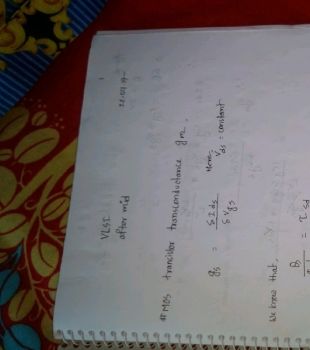 VLSI
after mid
# MOS transistor transconductance gm.
gs = δIds / δVgs
Here, Vds = constant
We know that,